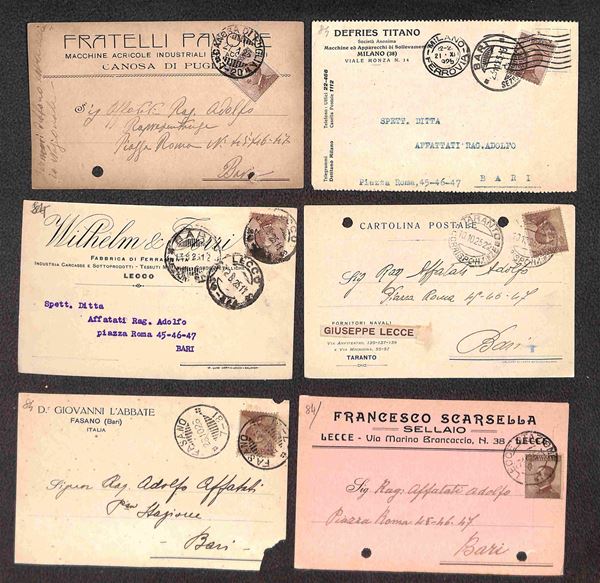 FRATELLI
MACCHINE AGRICOLE INDUSTRIALI
CANOSA DI PUGLIA
Sig. Affatati Rag. Adolfo
Rappresentanze
Piazza Roma N. 45-46-47
Bari
84
DEFRIES TITANO
Società Anonima
Macchine ed Apparecchi di Sollevamento
MILANO (38)
VIALE MONZA N. 14
Telefono: Uffici 22-466
Casella Postale 1112
Telegrammi
MILANO
FERROVIA
BARI
SPETT. DITTA
AFFATATI RAG.ADOLFO
Piazza Roma,45-46-47
BARI
84
Wilhelm &
FABBRICA DI
INDUSTRIA CARCASSE E SOTTOPRODOTTI - TESSUTI
LECCO
BARI
LECCO
Spett. Ditta
Affatati Rag. Adolfo
piazza Roma 45-46-47
BARI
CARTOLINA POSTALE
TARANTO
Sig Rag Affatati Adolfo
Piazza Roma 45-46-47
Bari
FORNITORI NAVALI
GIUSEPPE LECCE
VIA ANFITEATRO, 135-137-139
TARANTO
84
Dr. GIOVANNI L'ABBATE
FASANO (Bari)
ITALIA
FASANO
FASANO
Signor Rag. Adolfo Affatati
Stazione
Bari
84/
FRANCESCO SCARSELLA
SELLAIO
LECCE - Via Marino Brancaccio, N. 38 - LECCE
LECCE
Sig Rag. Affatati Adolfo
Piazza Roma 45-46-47
Bari